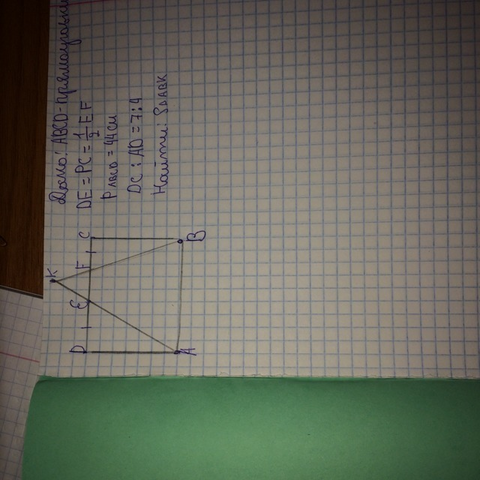 Дано: ABCD-прямоугольни
DE=PC=1/2 EF
PABCD=44см
DC:AD=7:4
Найти: SΔABK
K
D E F C
A B